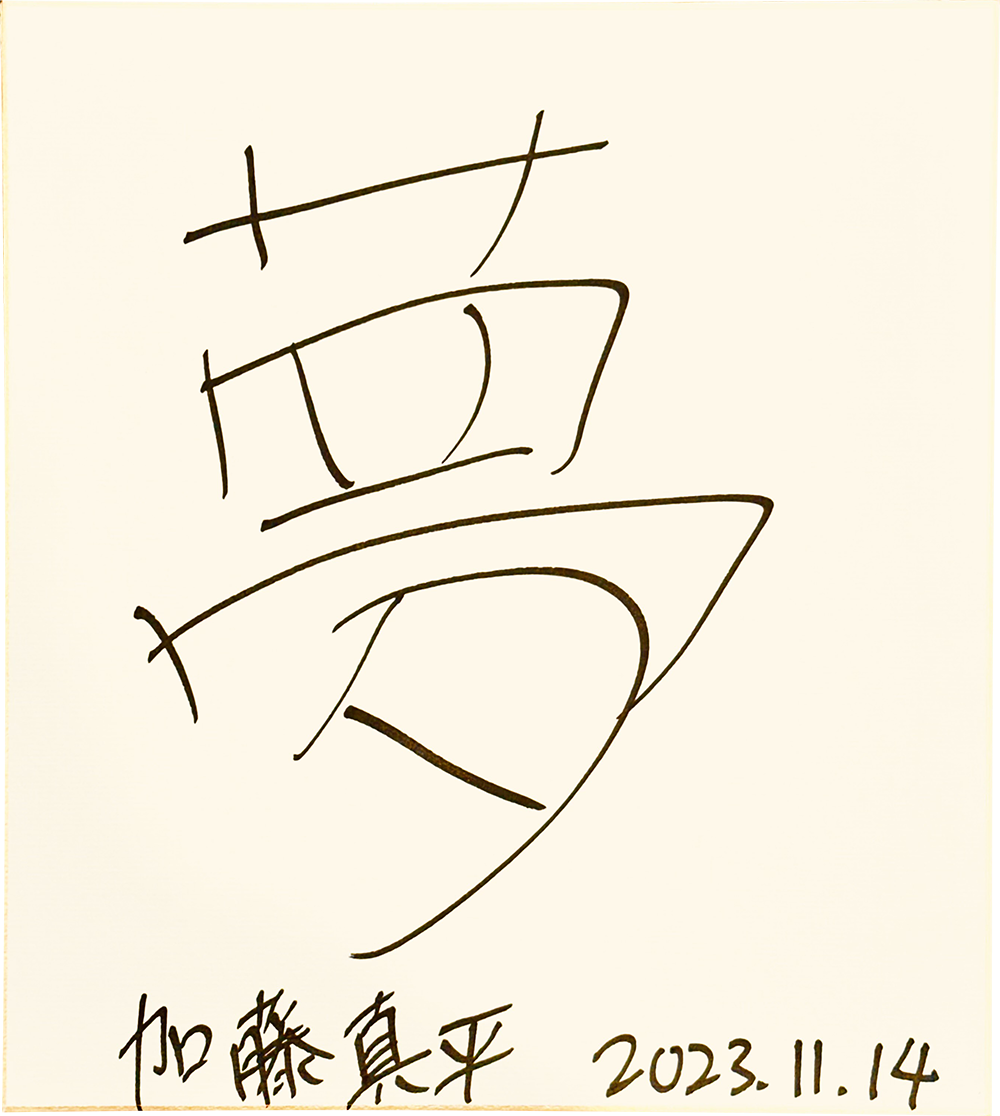 夢
加藤真平 2023.11.14